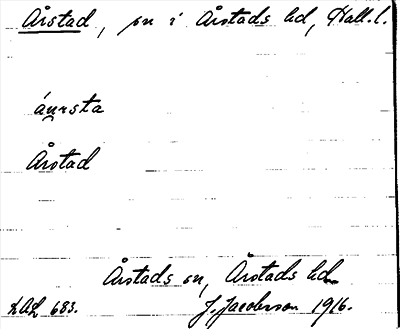 Årstad, sn i Årstads hd, Hall. l.
áu̯rsta
Årstad
Årstads sn, Årstads hd
J. Jacobsson 1916.
DAL 683.